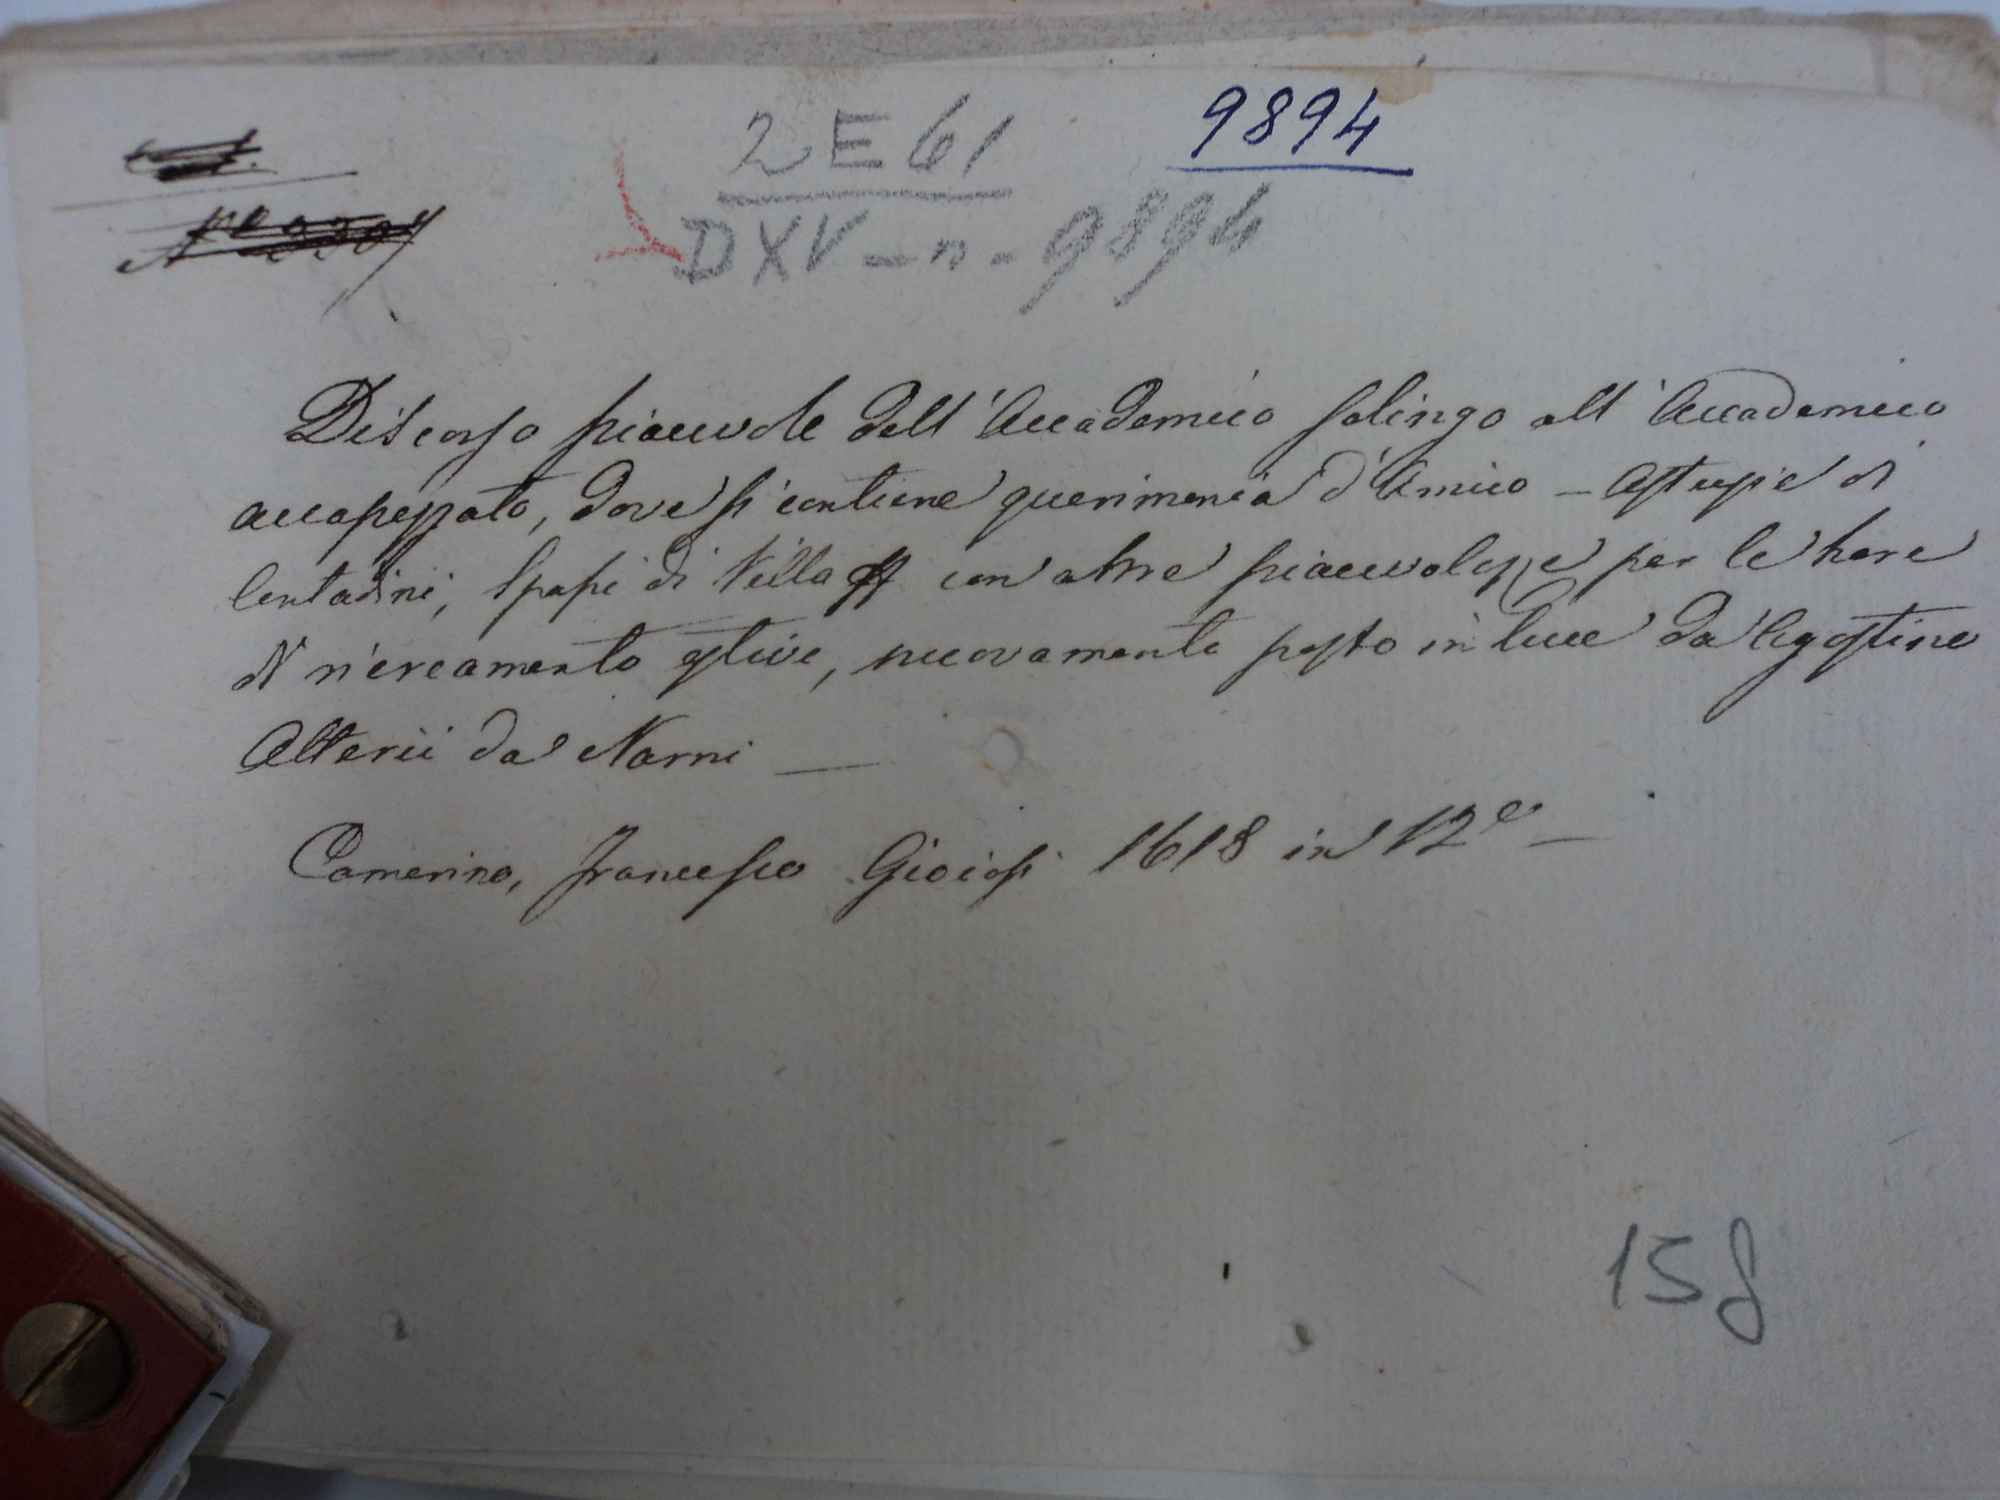 9894
2 E 61
DXV - n - 9894
Discorso piacevole dell'Accademico Solingo all'Accademico
accapezzato, dove si contiene querimonia d'Amico - Astuzie di
Contadini, Spassi di Villa con altre piacevolezze per le hore
di ricreamento estive, nuovamente posto in luce da Agostino
Alterii da Narni
Camerino, Francesco Gioiosi 1618 in 12°
158